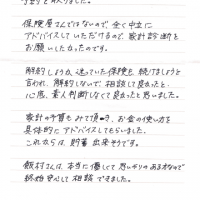 保険屋さんではないので、全く中立に
アドバイスしていただけるので、家計診断を
お願いしたかったのです。
解約しようか迷っていた保険を続けましょうと
言われ、解約しないで、相談して良かったと
心底、素人判断しなくて良かったと思いました。
家計の予算もみて頂き、お金の使い方を
具体的にアドバイスしてもらいました。
これからは、貯蓄出来そうです。
飯村さんは、本当に優しくて思いやりのある方なので
終始安心して相談できました。